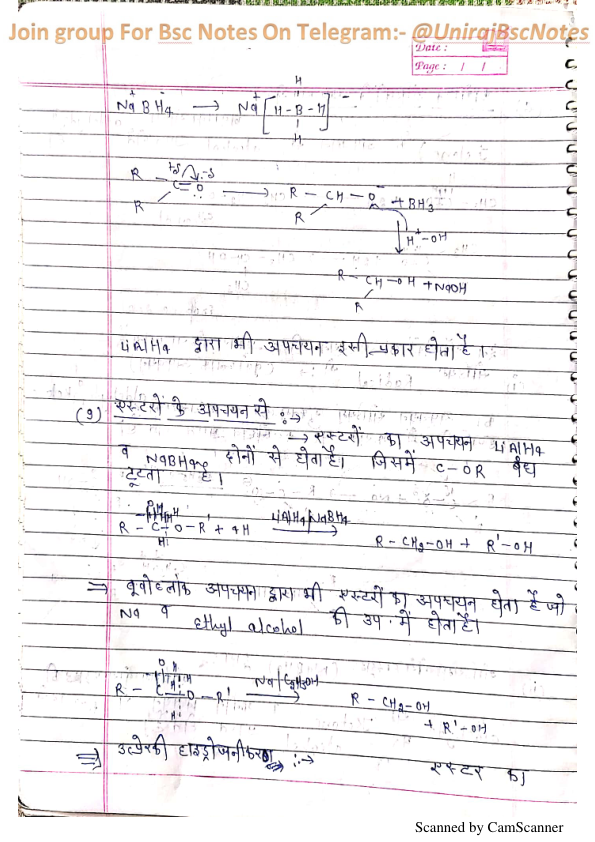 Join group For Bsc Notes On Telegram:- @UnirajBscNotes
Date :
Page : / /
H
Na⁺ BH₄⁻ → Na⁺ [H-B-H]⁻
H
R +δ -δ
C=O → R - CH - O⁻ + BH₃
R R
H⁺-OH
R - CH - OH + NaOH
R
LiAlH₄ द्वारा भी अपचयन इसी प्रकार होता है।
एस्टरों के अपचयन से :→
→ एस्टरों का अपचयन LiAlH₄
व NaBH₄ दोनों से होता है। जिसमें C-OR बंध
टूटता है।
R - C - O - R' + 4H LiAlH₄/NaBH₄ → R - CH₂-OH + R'-OH
⇒ बूवोब्लांक अपचयन द्वारा भी एस्टरों का अपचयन होता है जो
Na व ethyl alcohol की उप. में होता है।
R - C - O - R' Na/C₂H₅OH → R - CH₂-OH
+ R'-OH
⇒ उत्प्रेरकी हाइड्रोजनीकरण :→
एस्टर का
Scanned by CamScanner